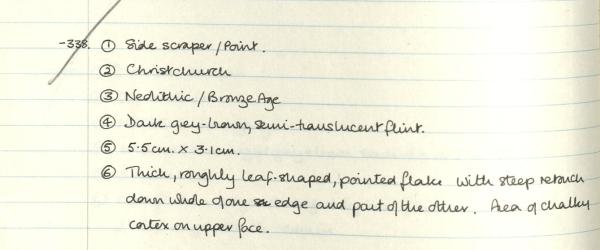 -338. ① Side scraper/Point.
② Christchurch
③ Neolithic/Bronze Age
④ Dark grey-brown, semi-translucent flint.
⑤ 5.5cm. x 3.1cm.
⑥ Thick, roughly leaf-shaped, pointed flake with steep retouch
down whole of one edge and part of the other. Area of chalky
cortex on upper face.